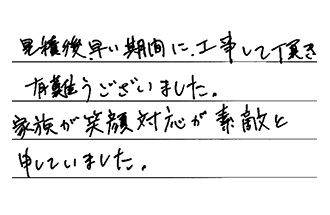 見積後、早い期間に、工事して頂き
有難うございました。
家族が笑顔対応が素敵と
申していました。